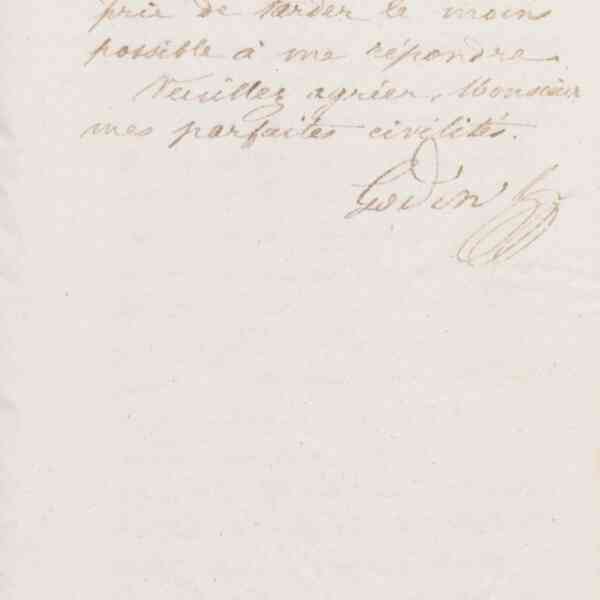 prie de tarder le moins
possible à me répondre.
Veuillez agréer, Monsieur
mes parfaites civilités.
Godin